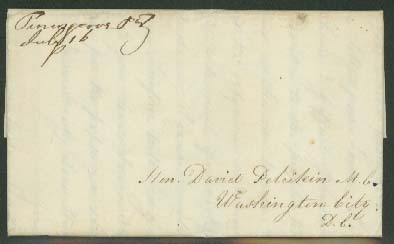 Pinegrove Pa
July 16
Hon. David Petrikin M.C.
Washington City.
D.C.